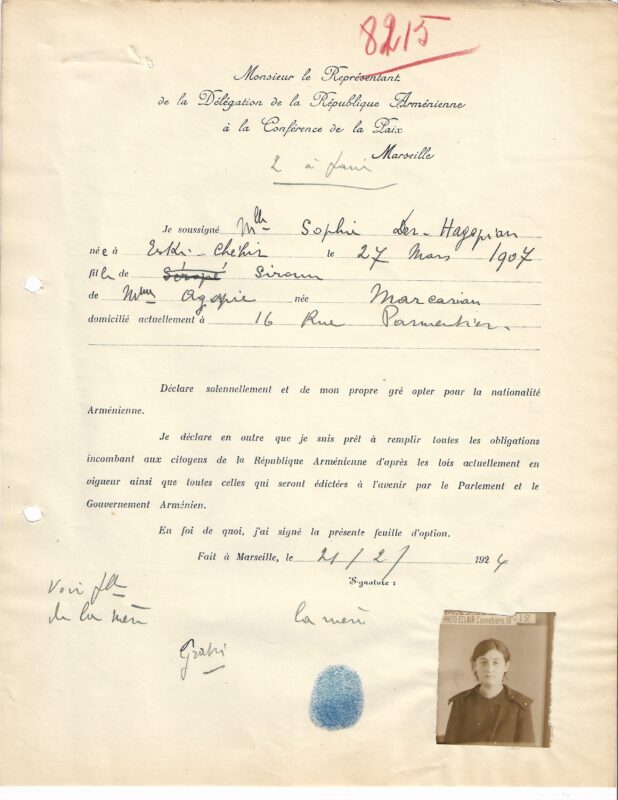 8215
Monsieur le Représentant
de la Délégation de la République Arménienne
à la Conférence de la Paix
Marseille
2 à faire
Je soussigné Mlle Sophie Der-Hagopian
née à Eski-Chéhir le 27 Mars 1907
fille de Siroun
de Mme Agapie née Marcarian
domicilié actuellement à 16 Rue Parmentier.
Déclare solennellement et de mon propre gré opter pour la nationalité
Arménienne.
Je déclare en outre que je suis prêt à remplir toutes les obligations
incombant aux citoyens de la République Arménienne d'après les lois actuellement en
vigueur ainsi que toutes celles qui seront édictées à l'avenir par le Parlement et le
Gouvernement Arménien.
En foi de quoi, j'ai signé la présente feuille d'option.
Fait à Marseille, le 21/2/ 1924
Signature :
Voir flle
de la mère
la mère
Gratis
PHOTO-ECLAIR Cannebière